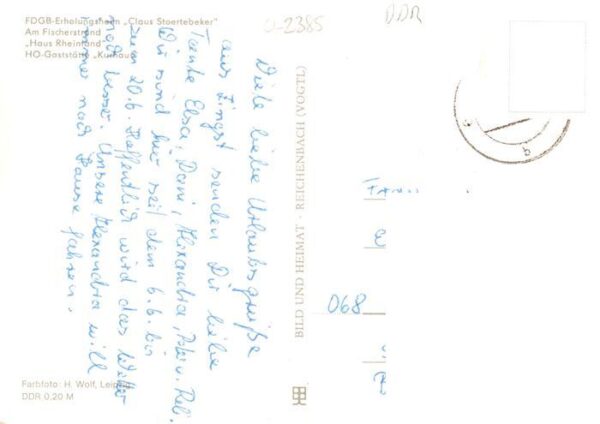 FDGB-Erholungsheim „Claus Stoertebeker"
Am Fischerstrand
„Haus Rheinland"
HO-Gaststätte „Kurhaus"
0-2385
DDR
Viele liebe Urlaubsgrüße
aus Zingst senden Dir liebe
Tante Elsa, Dani, Alexandra,
Wir sind hier seit dem 6.6. bis
zum 20.6. Hoffentlich wird das Wetter
noch besser. Unsere Alexandra will
immer nach Hause fahren.
BILD UND HEIMAT · REICHENBACH (VOGTL)
068
Farbfoto: H. Wolf, Leipzig
DDR 0,20 M